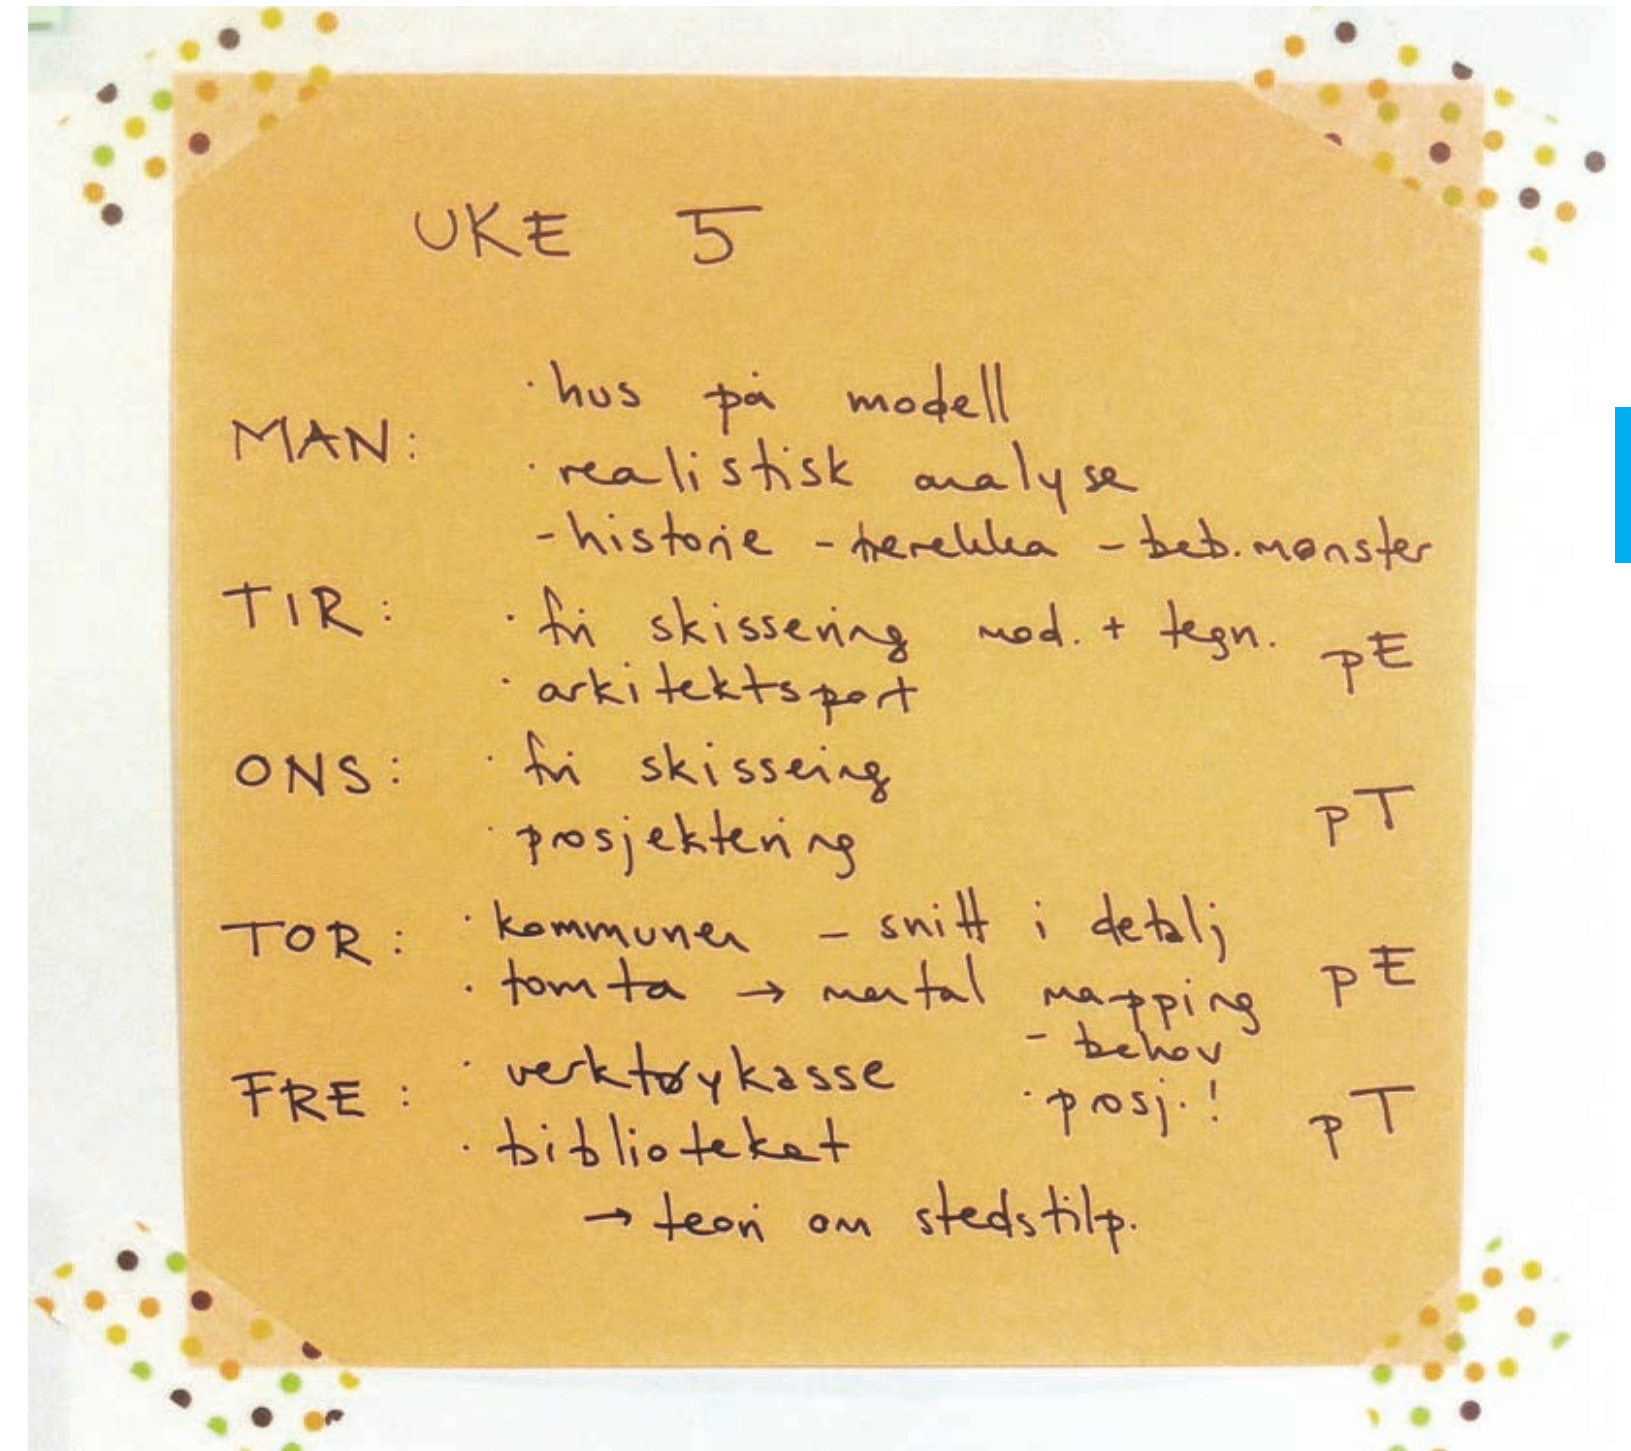 UKE 5
· hus på modell
MAN:
· realistisk analyse
- historie - trerekka - beb.mønster
TIR: · fri skissering mod. + tegn. pE
· arkitektsport
ONS: · fri skisseing
· prosjektering pT
TOR: · kommunen - snitt i detalj
· tomta → mental mapping pE
- behov
FRE: · verktøykasse · prosj.! pT
· biblioteket
→ teori om stedstilp.